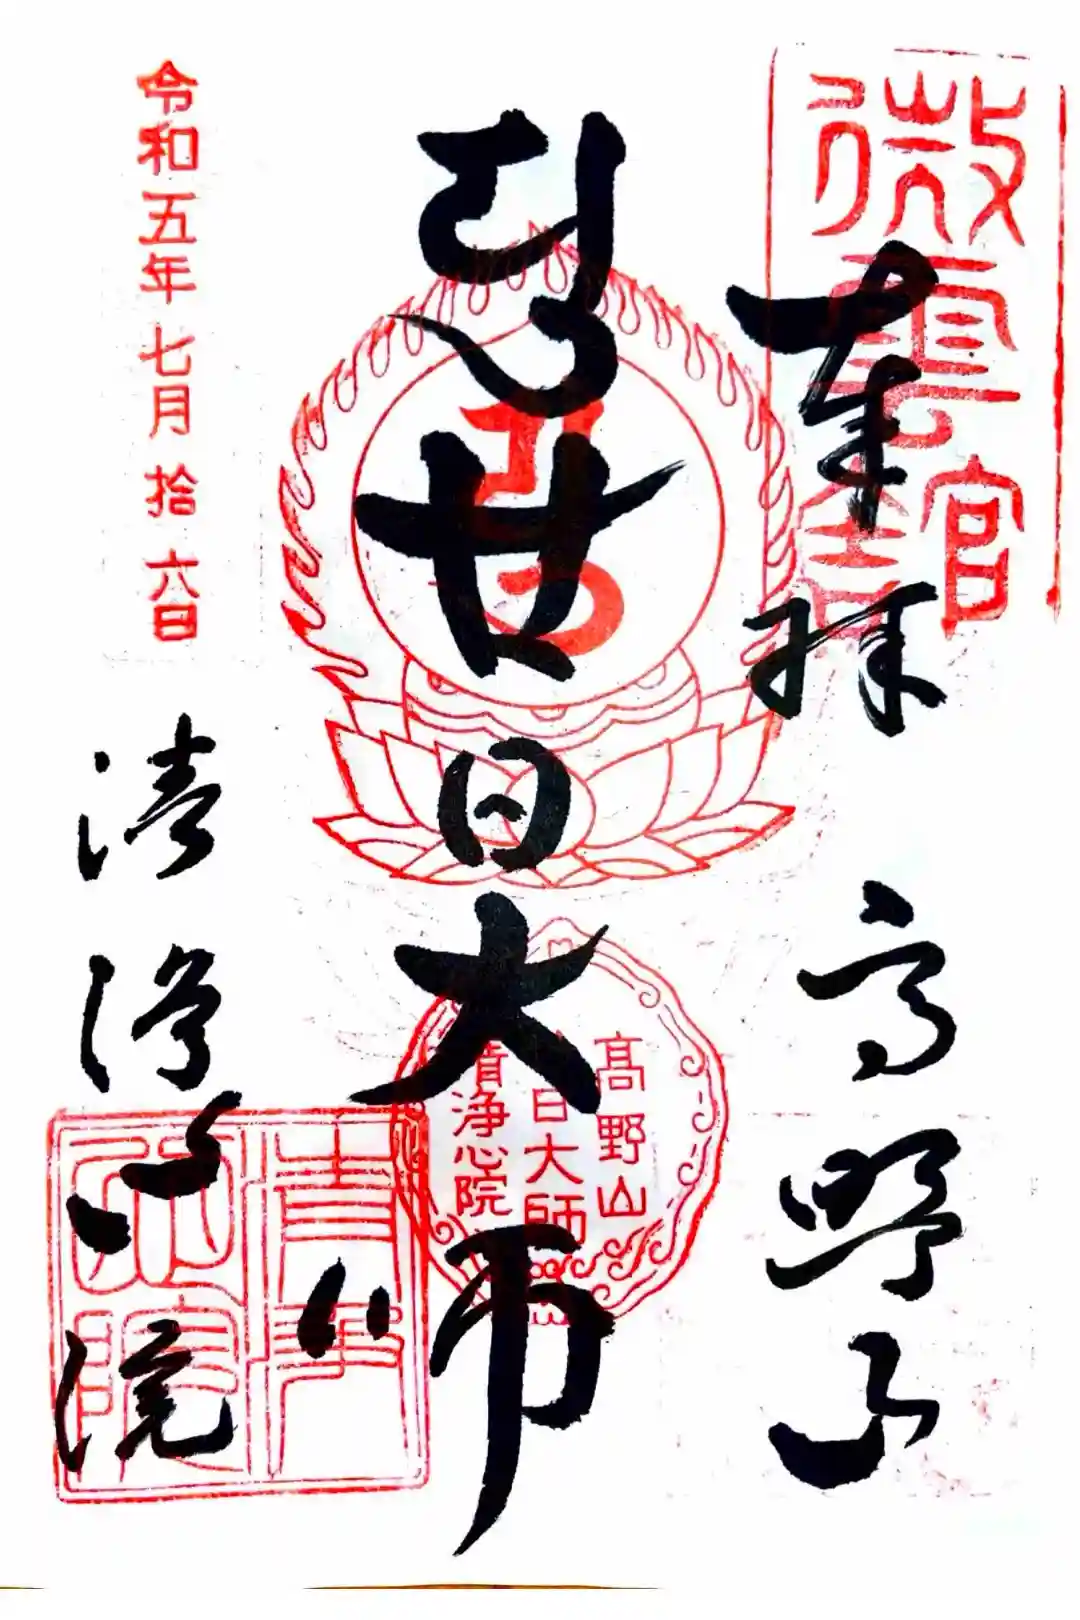 微雲宮
奉拝 高野山
廿日大師
高野山
廿日大師
清浄心院
令和五年七月拾六日
清浄心院
清浄心院